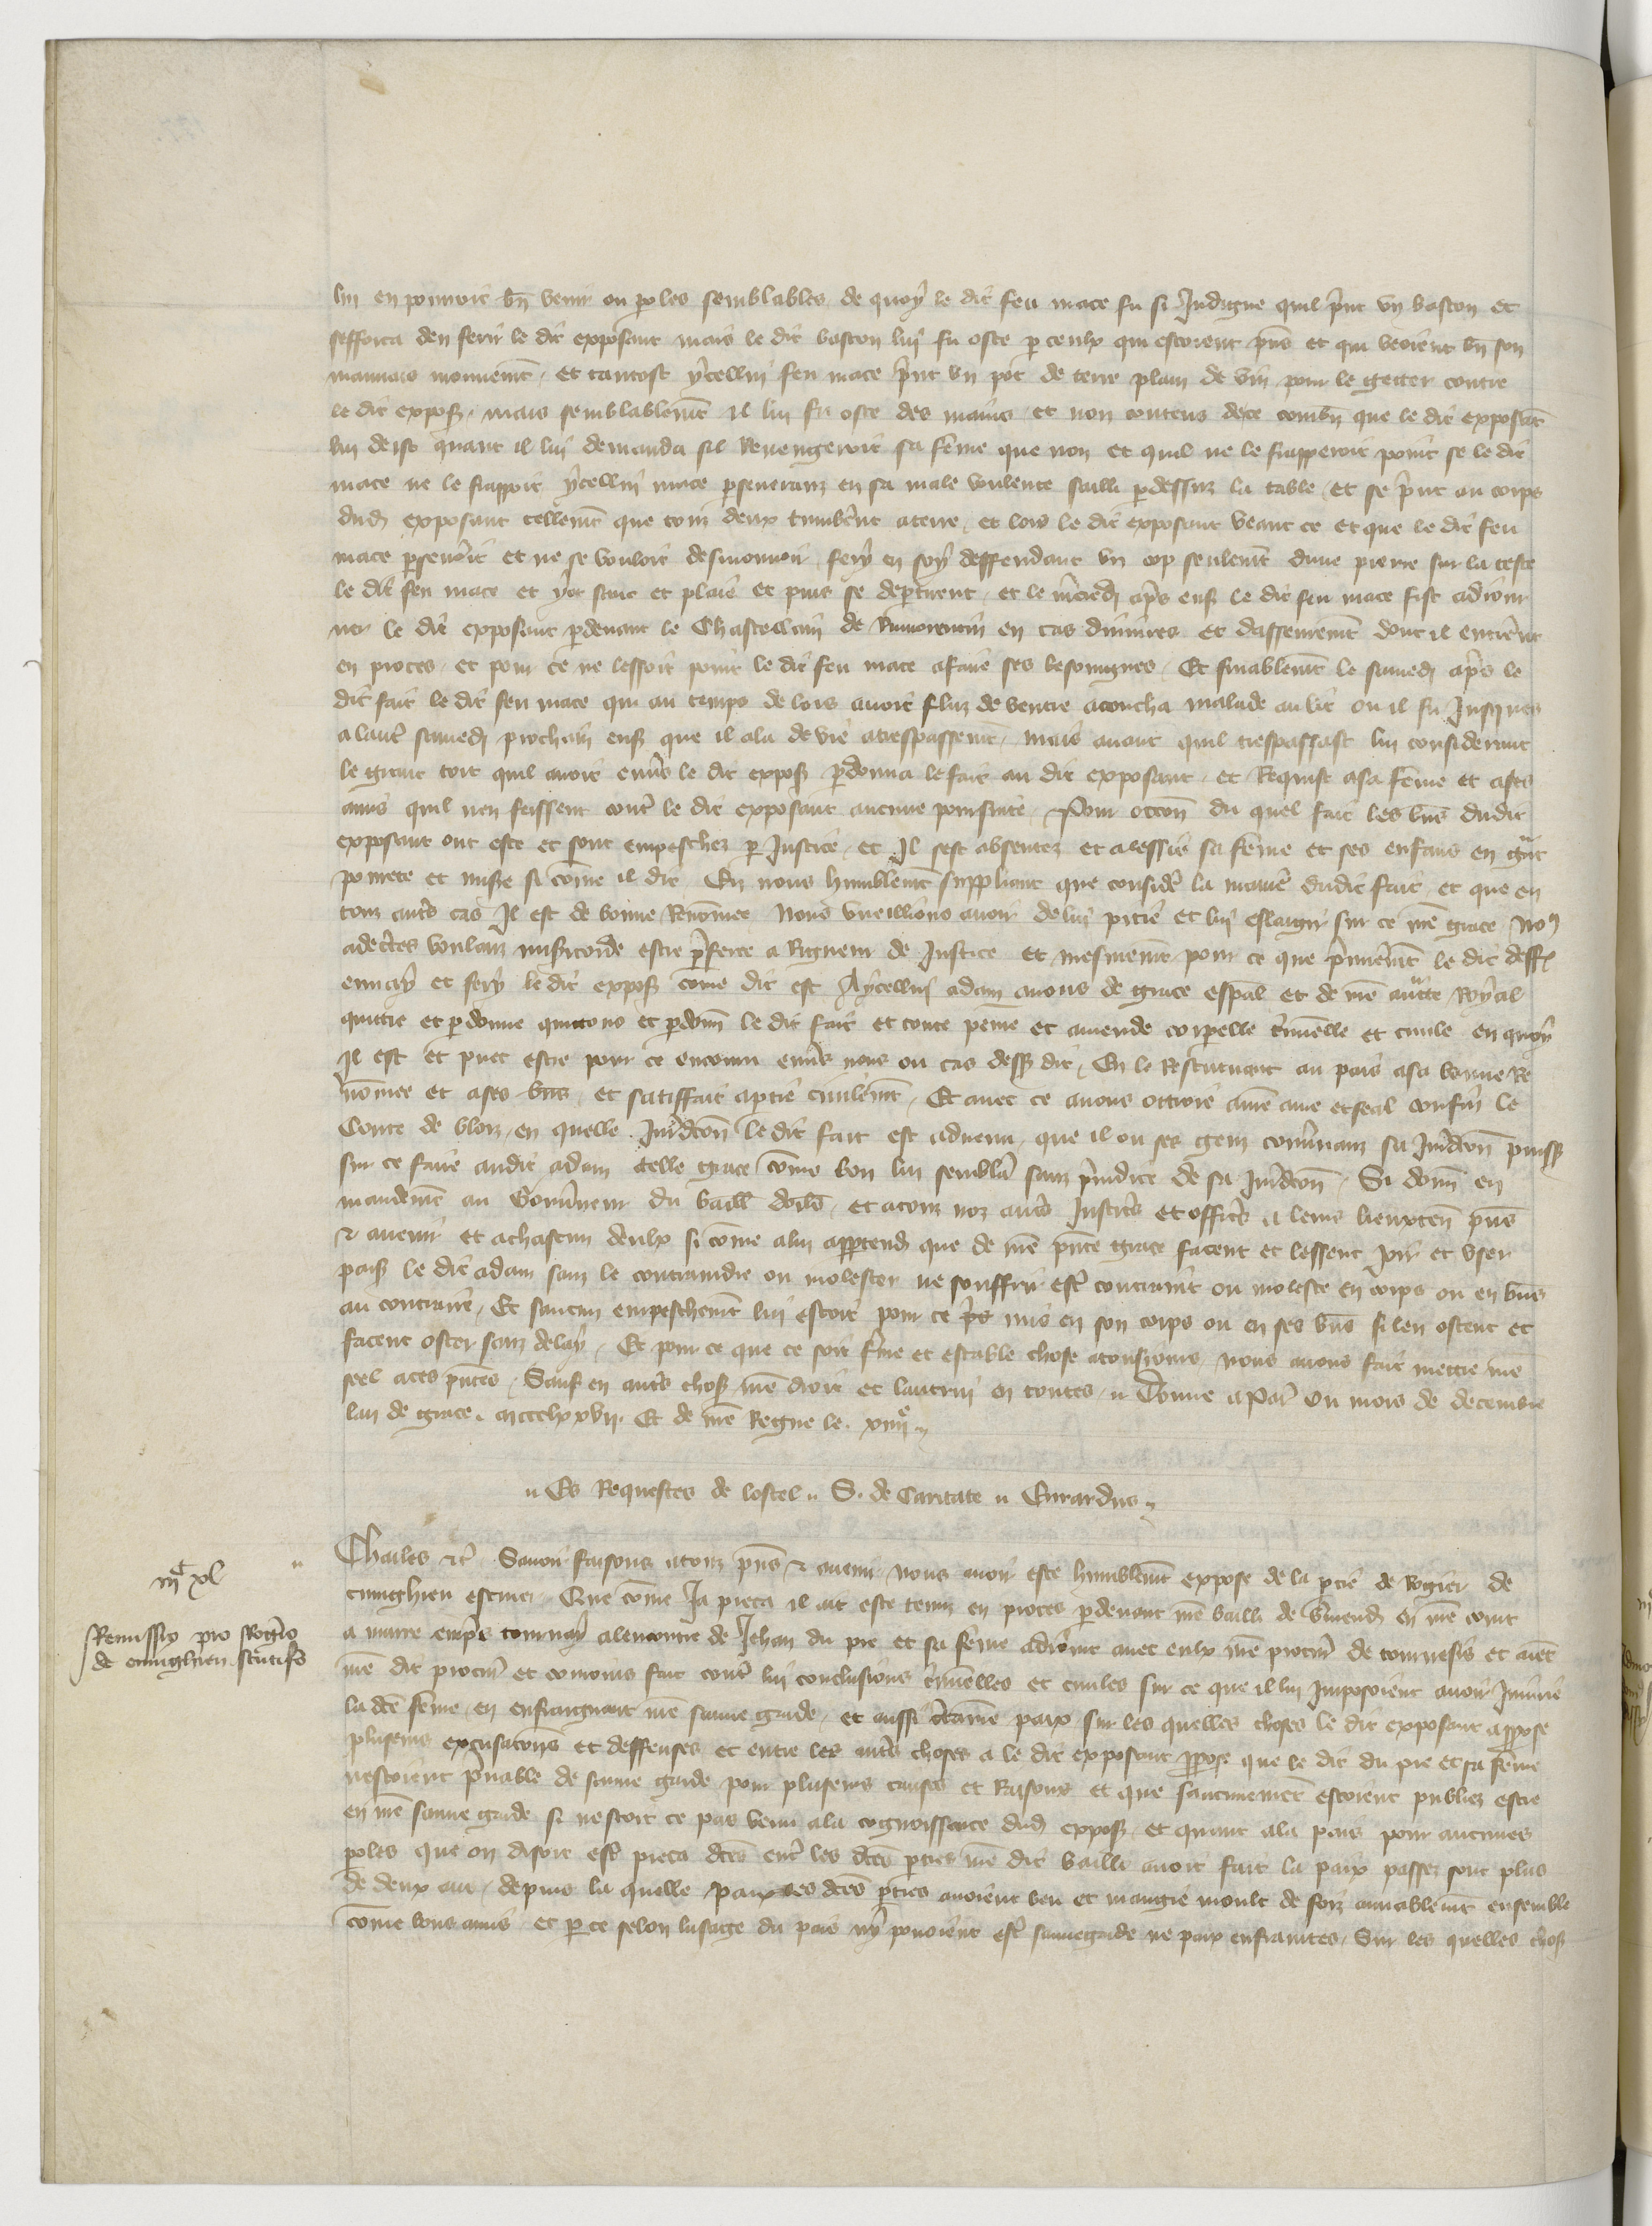 lui en pourroit bn̄ venir ou p̱oles semblables. de quoy le dit feu mace fu si Indigne quil p̄nt vn baston et
sefforca den ferir le dit exposant mais le dit baston luy fu oste p̱ ceulx qui estoient p̄ns et qui veoient bn̄ son
mauuais mouuemt̄. et tantost ycellui feu mace p̄nt vn pot de terre plain de vin pour le getter contre
le dit expoß. mais semblablemt̄ il lui fu oste des mains et non contens de ce combn̄ que le dit exposāt
lui deist quant il lui demanda sil Reuengeroit sa fēme que non et quil ne le frapperoit point se le dit
mace ne le frappoit ycellui mace p̱seueranz en sa male voulente sailli p̱dessuz la table et se p̄nt au corps
dud exposant tellemt̄ que touz deux tumbert̄ aterre. et lors le dit exposant veant ce et que le dit feu
mace p̱seuer̄oit et ne se vouloit desmouuoir fery en soy deffendant vn cop seulemt̄ dune pierre sur la teste
le dit feu mace et yot sanc et plaie et puis se dep̱tirent. et le mercredi ap̄s enß le dit feu mace fist adiour
ner le dit exposant p̱deuant le Chastellain de Rumorentin en cas diniures et dasseuremt̄ dont il entrer̄t
en proces. et pour ce ne lessoit point le dit feu mace afaire ses besoingnes. Et finablemt̄ le samedi ap̄s le
dit fait le dit feu mace qui au temps de lors auoit fluz de ventre acoucha malade au lit ou il fu Jusques
a lautr̄ samedi prochain enß que il ala de vie atrespassemt̄. mais auant quil trespassast lui considerant
le grant tort quil auoit enus̄ le dit expoß p̱donna le fait au dit exposant et Requist asa fēme et ases
amis quil nen feissent contr̄ le dit exposant aucune poursuite. Pour occon̄ du quel fait les bn̄s dudit
exposant ont este et sont empeschez p̱ Justice. et Il sest absentez et alessie sa fēme et ses enfans en gn̄t
pourete et misere si cōme il dit. En nous humblemt̄ suppliant que consider̄ la manier̄ dudit fait. et que en
touz autrs̄ cas Il est de bonne Renōmee. Nous vueillions auoir de lui pitie et lui eslargir sur ce nr̄e grace. No9
adecertes voulanz mis̄icorde estre p̄feree a Rigueur de Justice et mesmemt̄ pour ce que p̄mieremt̄ le dit deff
enuay et fery le dit expoß cōme dit est Aycellui adam auons de grace esp̄al et de nr̄e autte Royal
quittie et p̱donne quittons et p̱don̄ le dit fait et toute peine et amende corporelle crim̄elle et ciuile en quoy
Il est et puet estre pour ce encouru enus̄ nous ou cas dessß dit. En le Restituant au pais asa bonne Re
nōmee et ases bn̄s. et satiffait ap̱tie ciuilemt̄. Et auec ce auons ottroie anr̄e ame et feal cousin le
Conte de blois. en quelle Jurid̄con̄ le dit fait est aduenu. que il ou ses genz conseruanz sa Jurid̄con̄ puissß
sur ce faire audit adam telle grace cōme bon lui semblera sanz p̄iudice de sa Jurid̄con̄. Si donn̄ en
mandemt̄ au Gouuerneur du baill̄ dorlēs. et atouz noz autrs̄ Justic̄s et offic̄s a leurs lieuxten̄ p̄ns
⁊ auenir et achascun deulx si cōme alui apptend̄ que de nr̄e p̄nte grace facent et lessent Joir et vser
paiß le dit adam sanz le contraindre ou molester ne souffrir estr̄ contraint ou moleste en corps ou en bn̄s
au contraire. Et saucun empeschemt̄ lui estoit pour ce p̄s mis en son corps ou en ses bn̄s si len ostent et
facent oster sanz delay. Et pour ce que ce soit ferme et estable chose atousiours. nous auons fait mettre nr̄e
seel aces p̄ntes. Sauf en autrs̄ choß nr̄e droit et lautrui en toutes. Donne a Par̄ Ou mois de decembre
lan de grace. mccclxxvii. Et de nr̄e Regne le. xiiiie.
Es Requestes de lostel. S. de Caritate. Eurardus.
Charles ⁊c̄. Sauoir faisons atouz p̄ns ⁊ auenir. Nous auoir este humblemt̄ expose de la p̱tie de Rogier de
cuinghien escuier. Que cōme Ja pieca il ait este tenuz en proces p̱deuant nr̄e bailli de verm̄end̄ en nr̄e court
a maire emp̄s tournay alencontre de Jehan du pre et sa fēme adioint auec eulx nr̄e procur̄ de tournesis et aiēt
nr̄e dit procur̄ et conioins fait contr̄ lui conclusions crim̄elles et ciuiles sur ce que il lui Imposoient auoir Iniurie
la dc̄e fēme. en enfraignant nr̄e sauue garde. et aussi certainne paix sur les quelles choses le dit exposant appose
pluseurs excusacons̄ et deffenses et entre les autrs̄ choses a le dit exposant p̱pose que le dit du pre et sa fēme
nestoient prenable de sauue garde. pour pluseurs causes et Raisons et que saucunemēt estoient publiez estre
en nr̄e sauue garde si nestoit ce pas venu ala cognoissance dud̄ expoß. et quant ala pais pour aucunes
p̱oles que on disoit estr̄ pieca dc̄es entr̄ les dc̄es p̱ties nr̄e dit bailli auoit fait la paix passez sont plus
de deux ans. depuis la quelle paix les dc̄es p̱ties auoient beu et mangie moult de foiz amiablemt̄ ensemble
cōme bons amis. et p̱ ce selon lusage du pais ny pouoient estr̄ sauuegarde ne paix enfraintes. Sur les quelles choß
iiᶜ xl
Remissio pro Rogero
de cuinghien scutifero